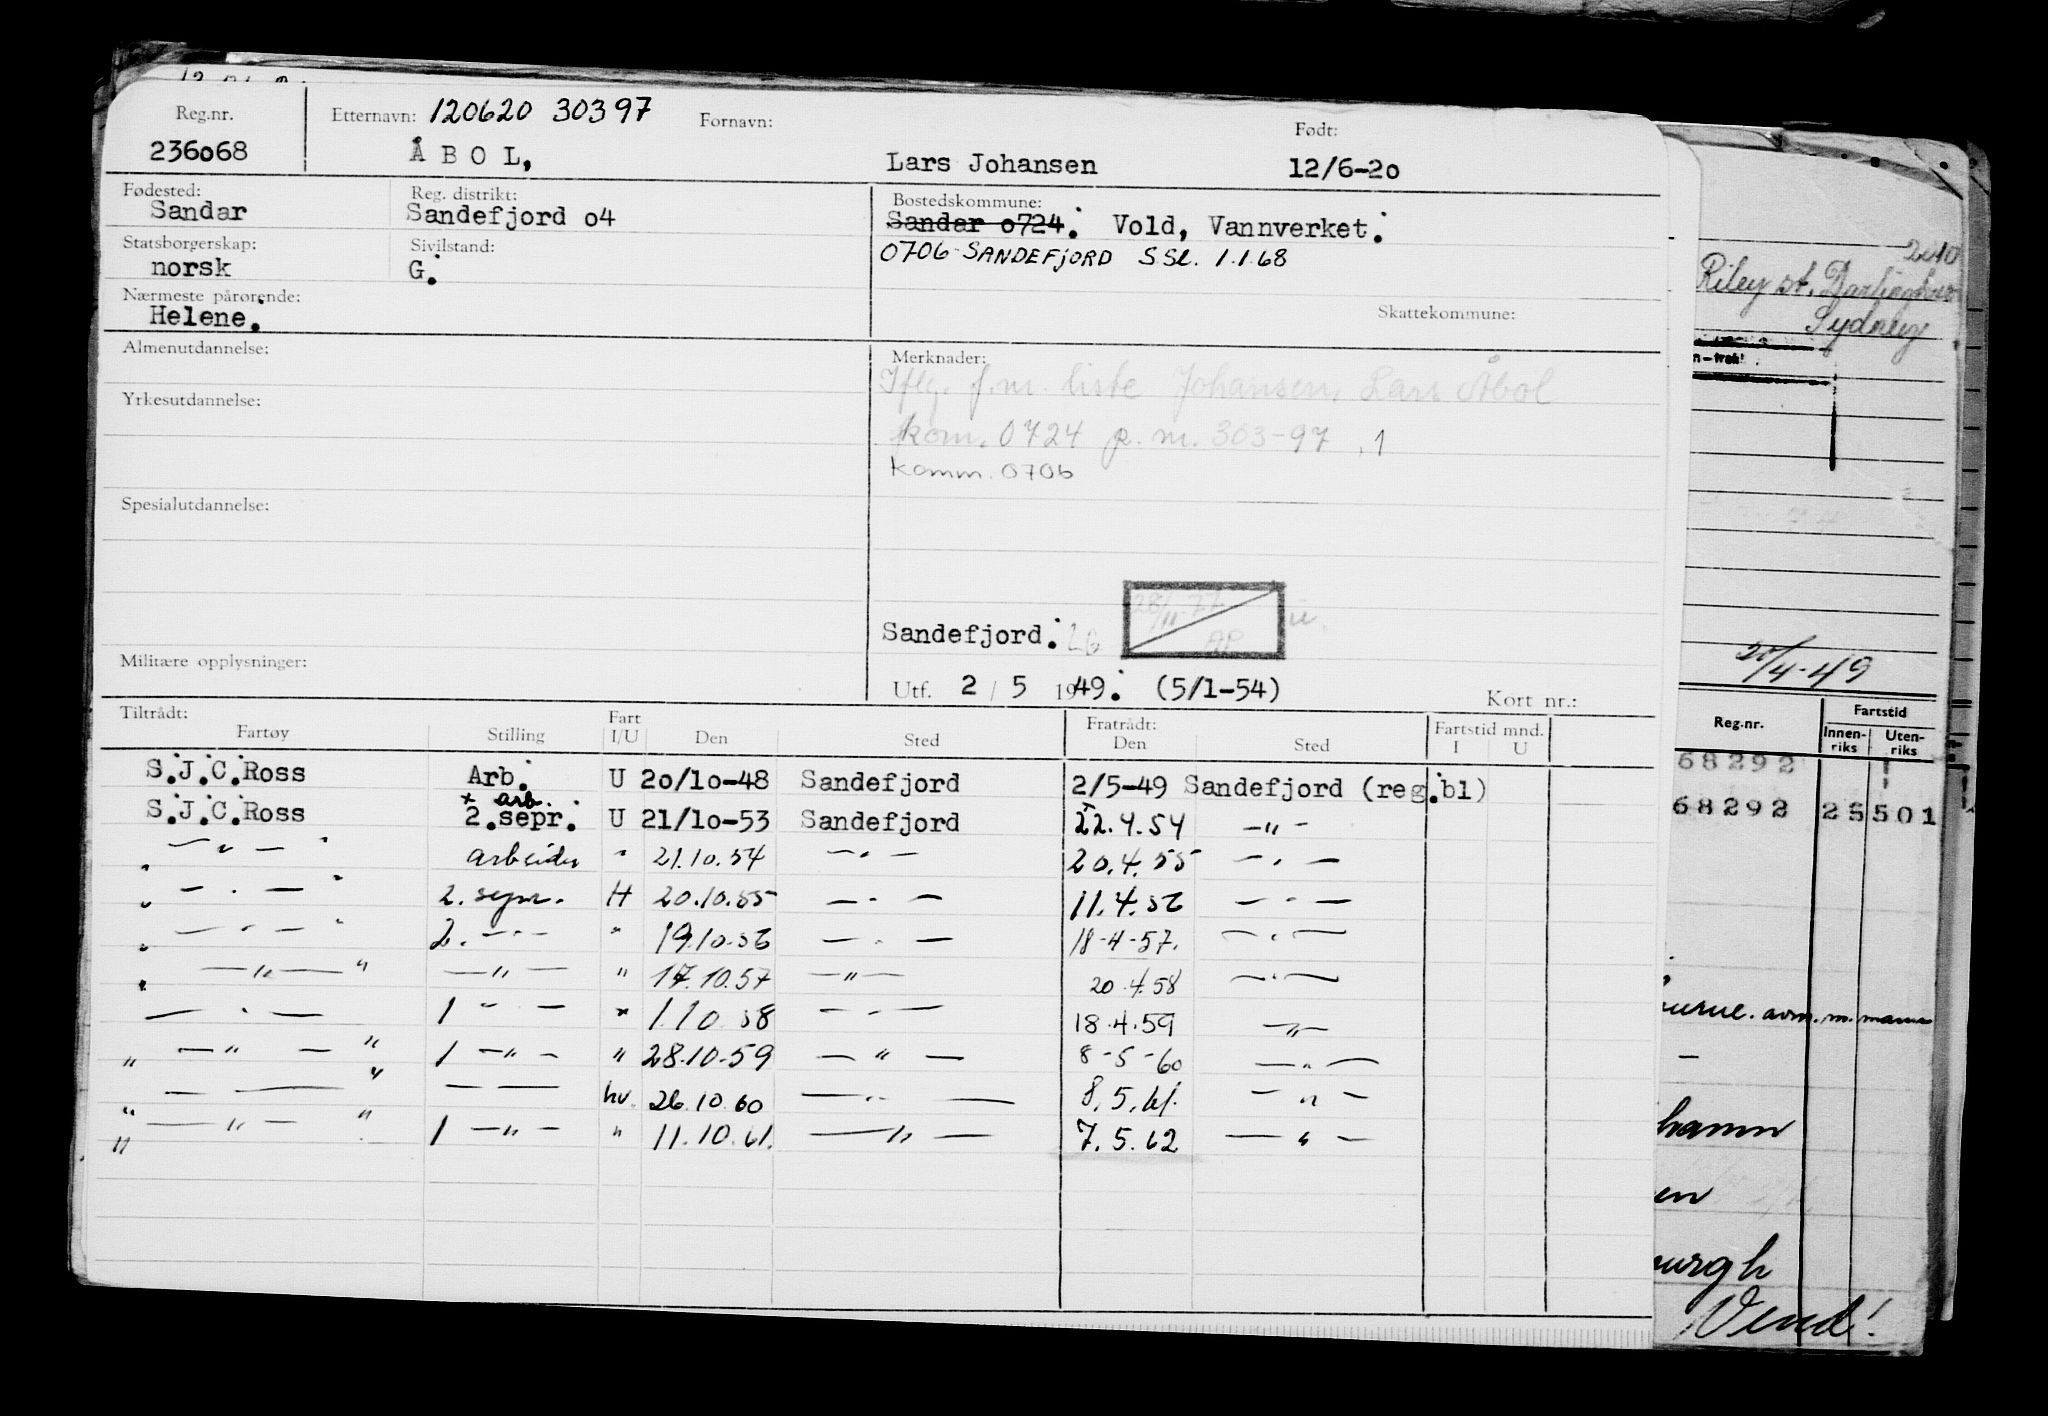 Reg.nr. Etternavn: 120620 30397 Fornavn: Født:
236068 ÅBOL, Lars Johansen 12/6-20
Fødested: Reg. distrikt: Bostedskommune:
Sandar Sandefjord 04 Sandar 0724. Vold, Vannverket.
Statsborgerskap: Sivilstand: 0706 SANDEFJORD S.Sl. 1.1.68
norsk G.
Nærmeste pårørende: Skattekommune:
Helene.
Almenutdannelse: Merknader:
Iflg. f.m. liste Johansen, Lars Åbol
Yrkesutdannelse:
kom. 0724 p.m. 303-97 , 1
Komm. 0706
Spesialutdannelse:
28/11-77
Sandefjord.
Militære opplysninger:
Utf. 2 / 5 1949. (5/1-54) Kort nr.:
Tiltrådt: Fart Fratrådt: Fartstid mnd.
Fartøy Stilling I/U Den Sted Den Sted I U
S.J.C.Ross Arb. U 20/10-48 Sandefjord 2/5-49 Sandefjord (reg.bl)
+ arb.
S.J.C.Ross 2.sepr. U 21/10-53 Sandefjord 22.4.54 —"—
" —"— " arbeider " 21.10.54 —"— 20.4.55 —"—
" —"— " 2. sepr. H 20.10.55 —"— 11.4.56 —"—
" —"— " 2. —"— " 19.10.56 —"— 18-4-57. —"—
" —"— " —"— " 17.10.57 —"— 20.4.58 —"—
—"— 1 —"— " 1.10.58 —"— 18.4.59 —"—
" —"— " 1 —"— " 28.10.59 —"— 8-5-60 —"—
— — " — — hv. 26.10.60 —"— 8.5.61. —"—
" —"— " 1 —"— " 11.10.61. —"— 7.5.62 —"—
"
2010
Riley st. Darlinghurst
Sydney
20/4-49
Reg.nr. Fartstid
Innen-riks Uten-riks
68292
68292 25 501
hamn
en
urgh
Vend!